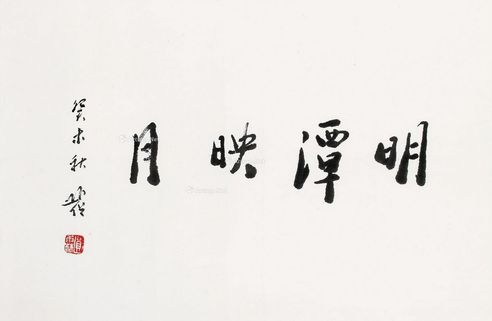 明潭映月
癸未秋